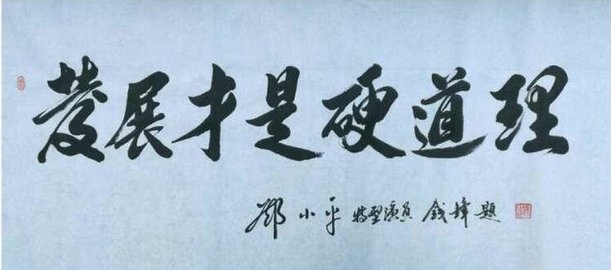 發展才是硬道理
鄧小平特型演員錢鋒題